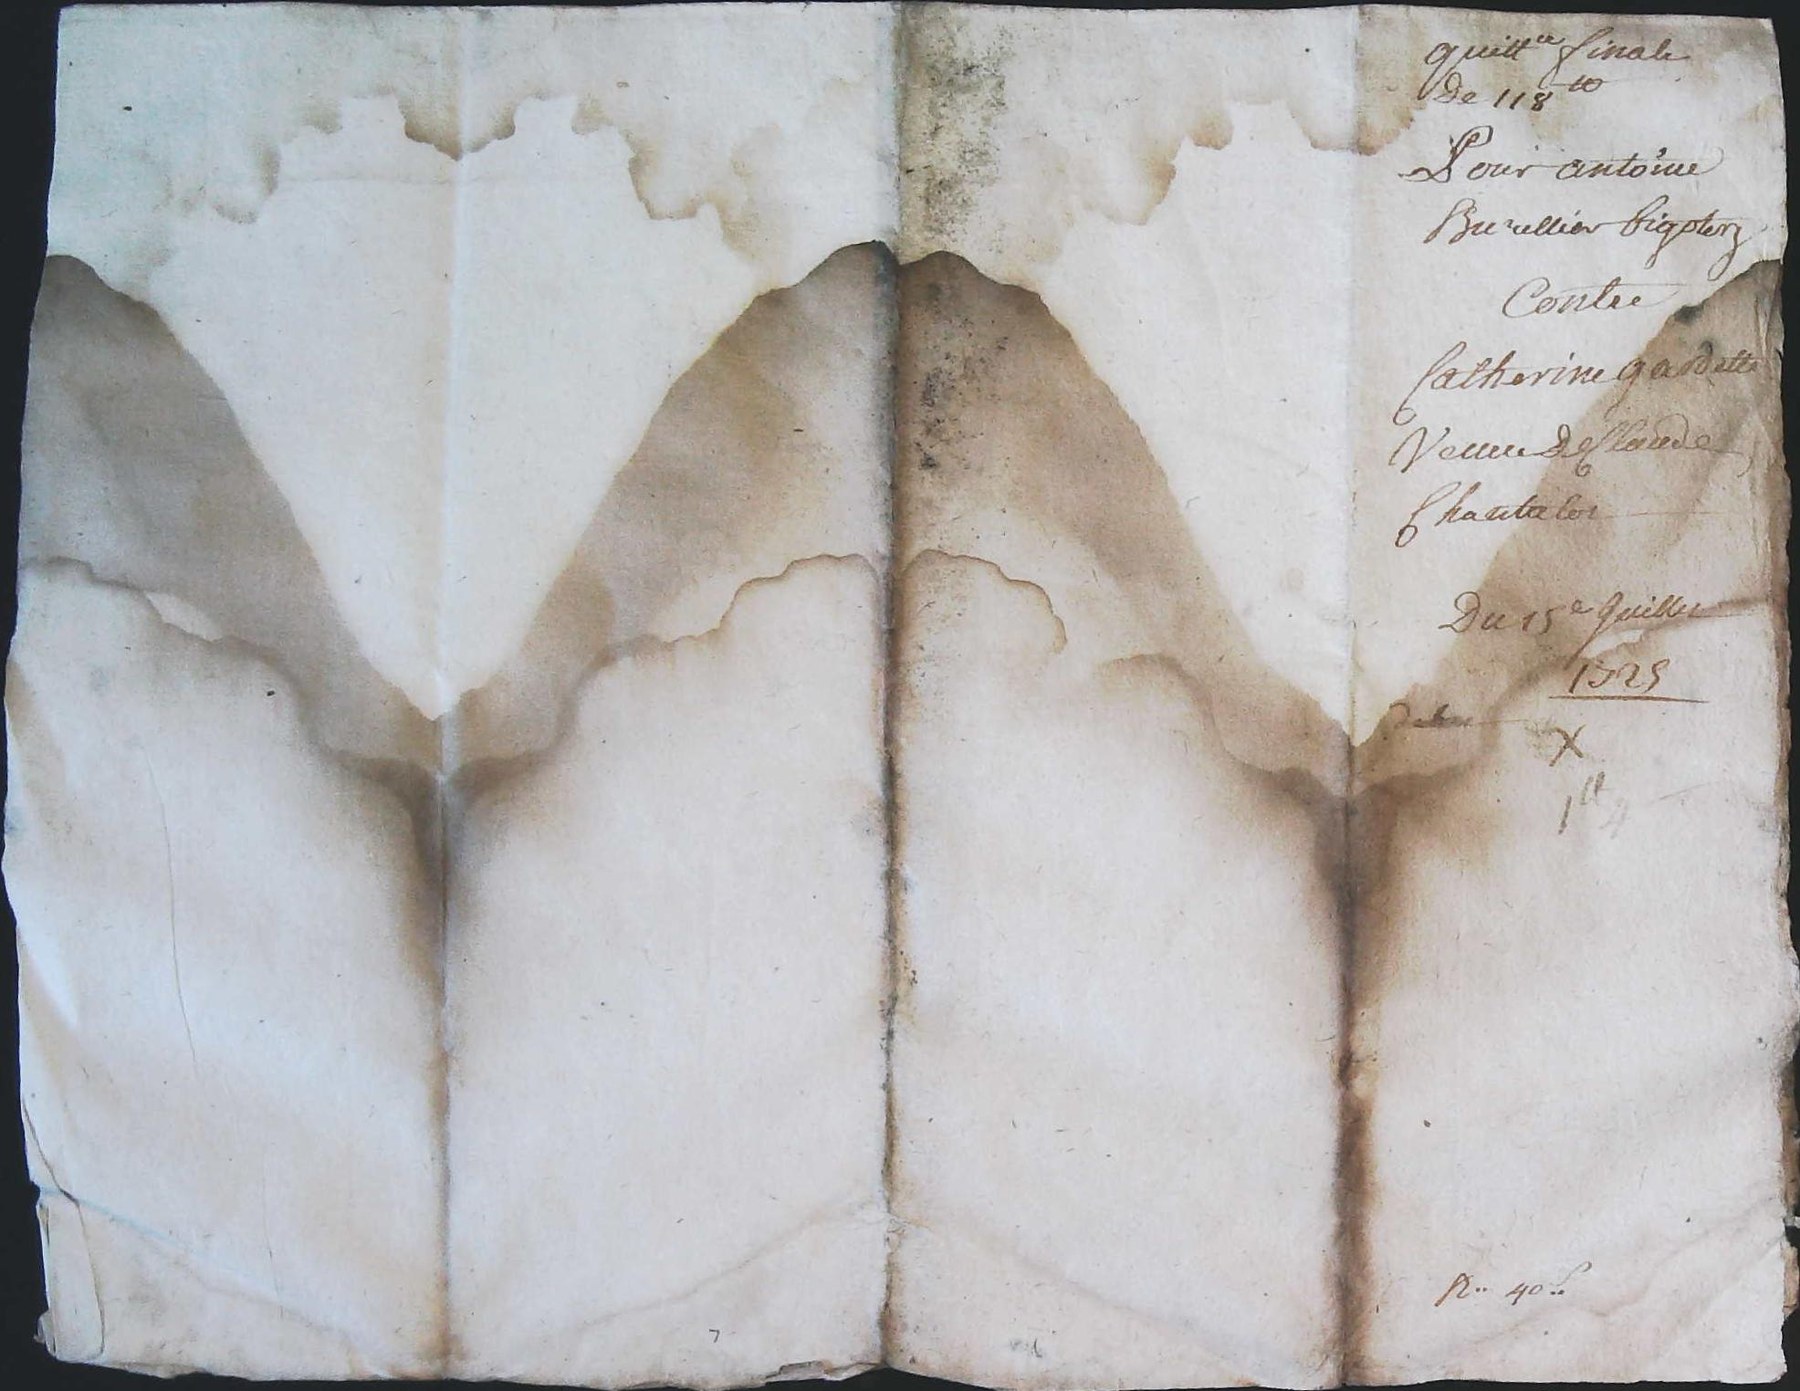 quitt^ce finale
De 118 ^tt
Pour antoine
Burellier
Contre
Catherine gardette
Veuve De Claude
Chantelot
Du 15^e Juillet
1725
X
1^tt 4
R.. 40..^s
7